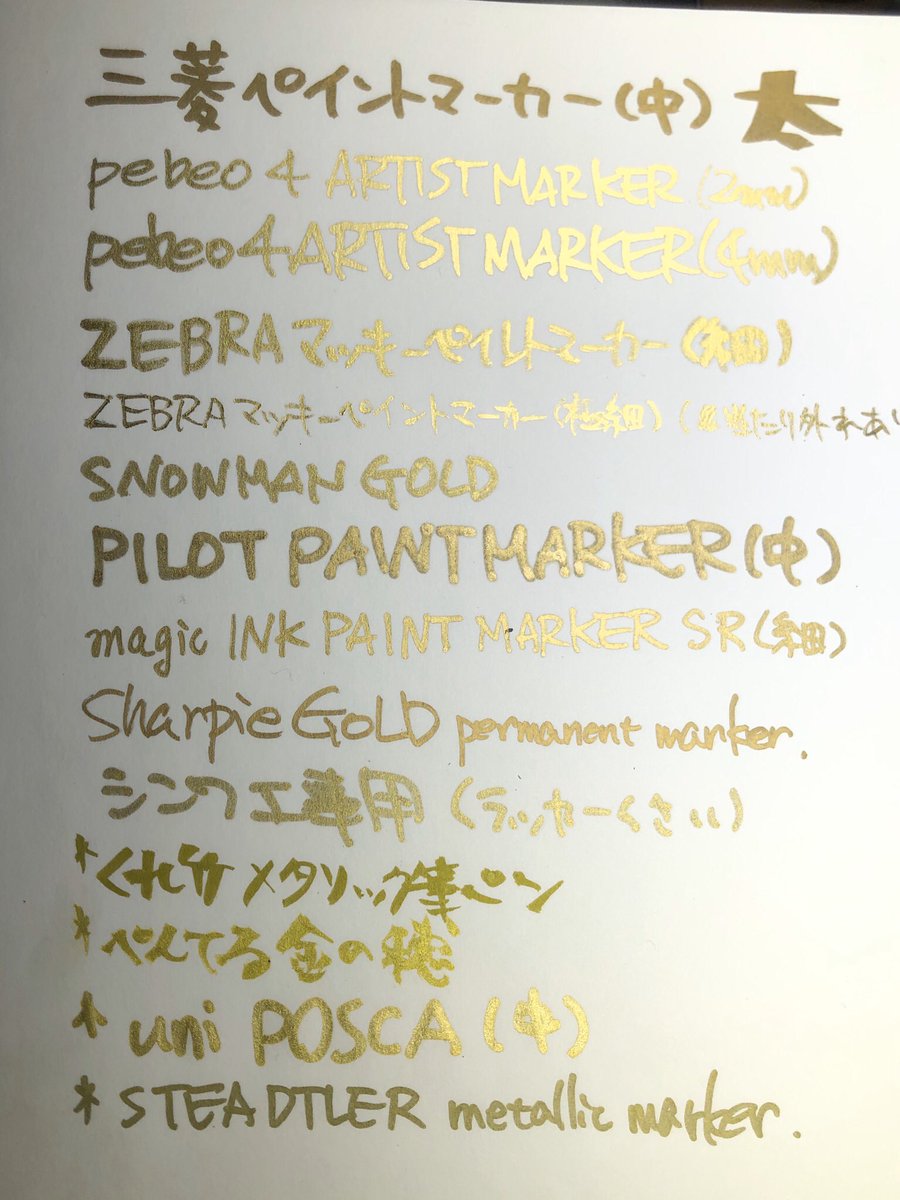 三菱ペイントマーカー(中) 太
pebeo 4 ARTIST MARKER (2mm)
pebeo 4 ARTIST MARKER (4mm)
ZEBRA マッキーペイントマーカー (細)
ZEBRA マッキーペイントマーカー (極細) (当たり外れあ
SNOWMAN GOLD
PILOT PAINT MARKER (中)
magic INK PAINT MARKER SR (細)
Sharpie GOLD permanent marker.
シンワ工業用 (ラッカーくさい)
*くれ竹メタリック筆ペン
*ぺんてる金の穂
* uni POSCA (中)
* STEADTLER metallic marker.